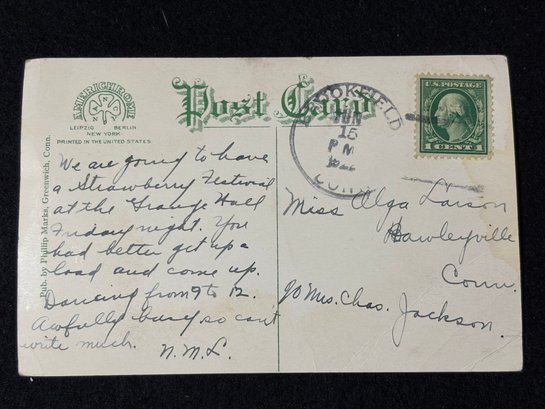 AMERICHROME
ANC
LEIPZIG BERLIN
NEW YORK
PRINTED IN THE UNITED STATES.
Post Card
BROOKFIELD
JUN
15
P M
CONN
U.S. POSTAGE
1 CENT 1
Pub. by Phillip Marks, Greenwich, Conn.
We are going to have
a Strawberry Festival
at the Grange Hall
Friday night. You
had better get up a
load and come up.
Dancing from 9 to 12.
Awfully busy so can't
write much.
N.M.L.
Miss Olga Larson
Hawleyville
Conn.
c/o Mrs. Chas. Jackson.